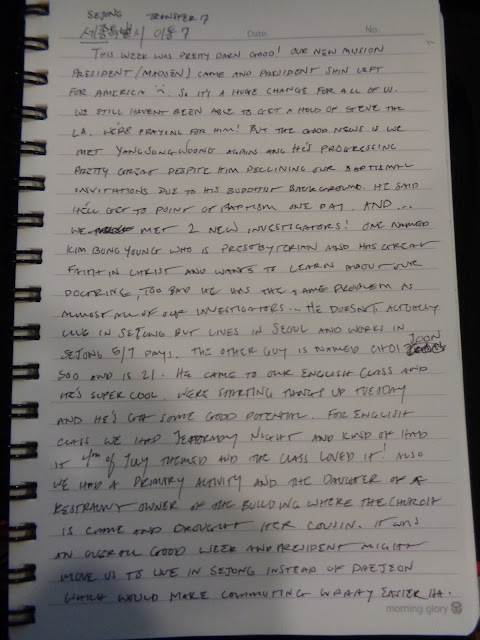 SEJONG TRANSFER 7
세종특별시 이동 7
Date No.
THIS WEEK WAS PRETTY DARN GOOD! OUR NEW MISSION
PRESIDENT (MADSEN) CAME AND PRESIDENT SHIN LEFT
FOR AMERICA SO IT'S A HUGE CHANGE FOR ALL OF US.
WE STILL HAVENT BEEN ABLE TO GET A HOLD OF STEVE THE
LA. WE'RE PRAYING FOR HIM! BUT THE GOOD NEWS IS WE
MET YANG SONG WOONG AGAIN AND HE'S PROGRESSING
PRETTY GREAT DESPITE HIM DECLINING OUR BAPTISMAL
INVITATIONS DUE TO HIS BUDDHIST BACKGROUND. HE SAID
HE'LL GET TO POINT OF BAPTISM ONE DAY. AND...
WE MET 2 NEW INVESTIGATORS! ONE NAMED
KIM BONG YOUNG WHO IS PRESBYTERIAN AND HAS GREAT
FAITH IN CHRIST AND WANTS TO LEARN ABOUT OUR
DOCTRINE, TOO BAD HE HAS THE SAME PROBLEM AS
ALMOST ALL OF OUR INVESTIGATORS... HE DOESN'T ACTUALLY
LIVE IN SEJONG BUT LIVES IN SEOUL AND WORKS IN
SEJONG 5/7 DAYS. THE OTHER GUY IS NAMED CHOI JOON
SOO AND IS 21. HE CAME TO OUR ENGLISH CLASS AND
HE'S SUPER COOL. WE'RE STARTING THINGS UP TUESDAY
AND HE'S GOT SOME GOOD POTENTIAL. FOR ENGLISH
CLASS WE HAD JEOPARDY NIGHT AND KIND OF HAD
IT 4TH OF JULY THEMED AND THE CLASS LOVED IT! ALSO
WE HAD A PRIMARY ACTIVITY AND THE DAUGHTER OF A
RESTRAUNT OWNER OF THE BUILDING WHERE THE CHURCH
IS CAME AND BROUGHT HER COUSIN. IT WAS
AN OVERALL GOOD WEEK AND PRESIDENT MIGHT
MOVE US TO LIVE IN SEJONG INSTEAD OF DAEJEON
WHICH WOULD MAKE COMMUTING WAAAY EASIER HA.
morning glory